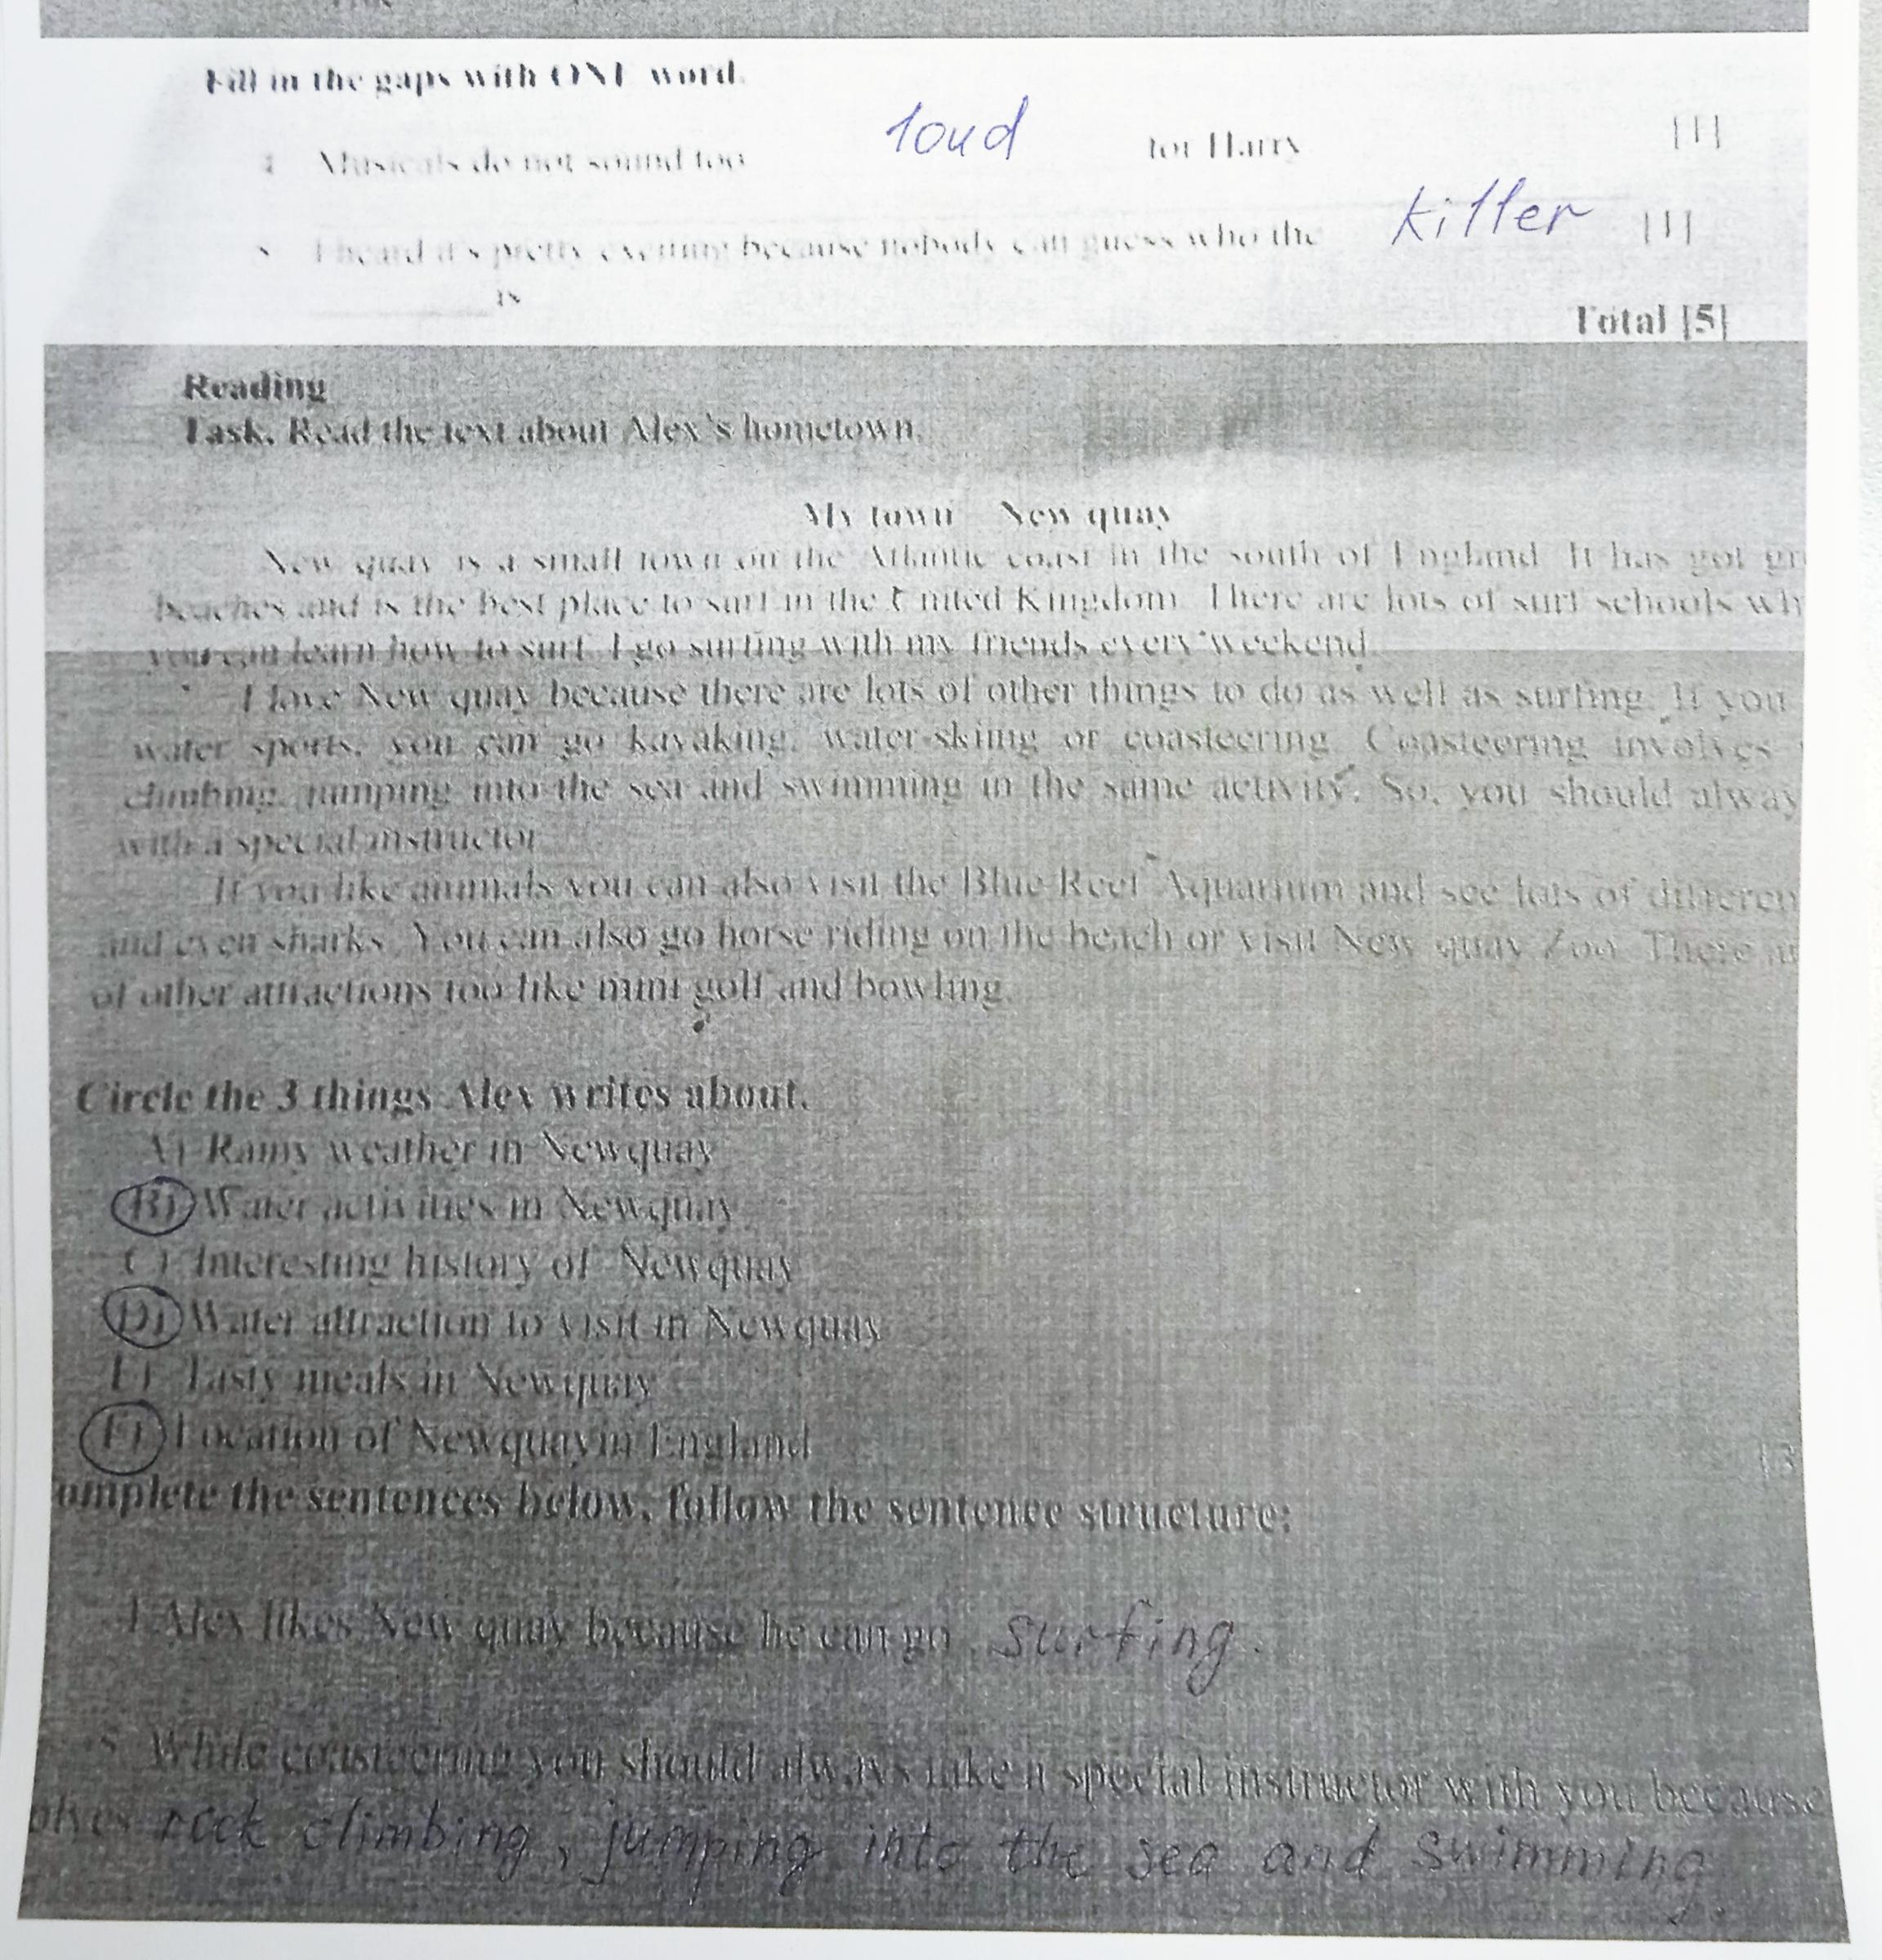 Fill in the gaps with ONE word.
loud
4 Musicals do not sound too for Harry [1]
killer
5 I heard it's pretty exciting because nobody can guess who the [1]
is
Total [5]
Reading
Task. Read the text about Alex's hometown.
My town New quay
New quay is a small town on the Atlantic coast in the south of England. It has got gr
beaches and is the best place to surf in the United Kingdom. There are lots of surf schools wh
you can learn how to surf. I go surfing with my friends every weekend.
I love New quay because there are lots of other things to do as well as surfing. If you
water sports, you can go kayaking, water-skiing or coasteering. Coasteering involves
climbing, jumping into the sea and swimming in the same activity. So, you should alway
with a special instructor
If you like animals you can also visit the Blue Reef Aquarium and see lots of differen
and even sharks. You can also go horse riding on the beach or visit New quay Zoo. There a
of other attractions too like mini golf and bowling.
Circle the 3 things Alex writes about.
A) Rainy weather in Newquay
B) Water activities in Newquay
C) Interesting history of Newquay
D) Water attraction to visit in Newquay
E) Tasty meals in Newquay
F) Location of Newquay in England
[3
omplete the sentences below, follow the sentence structure:
4 Alex likes New quay because he can go surfing.
5 While coasteering you should always take a special instructor with you because
olves rock climbing, jumping into the sea and swimming